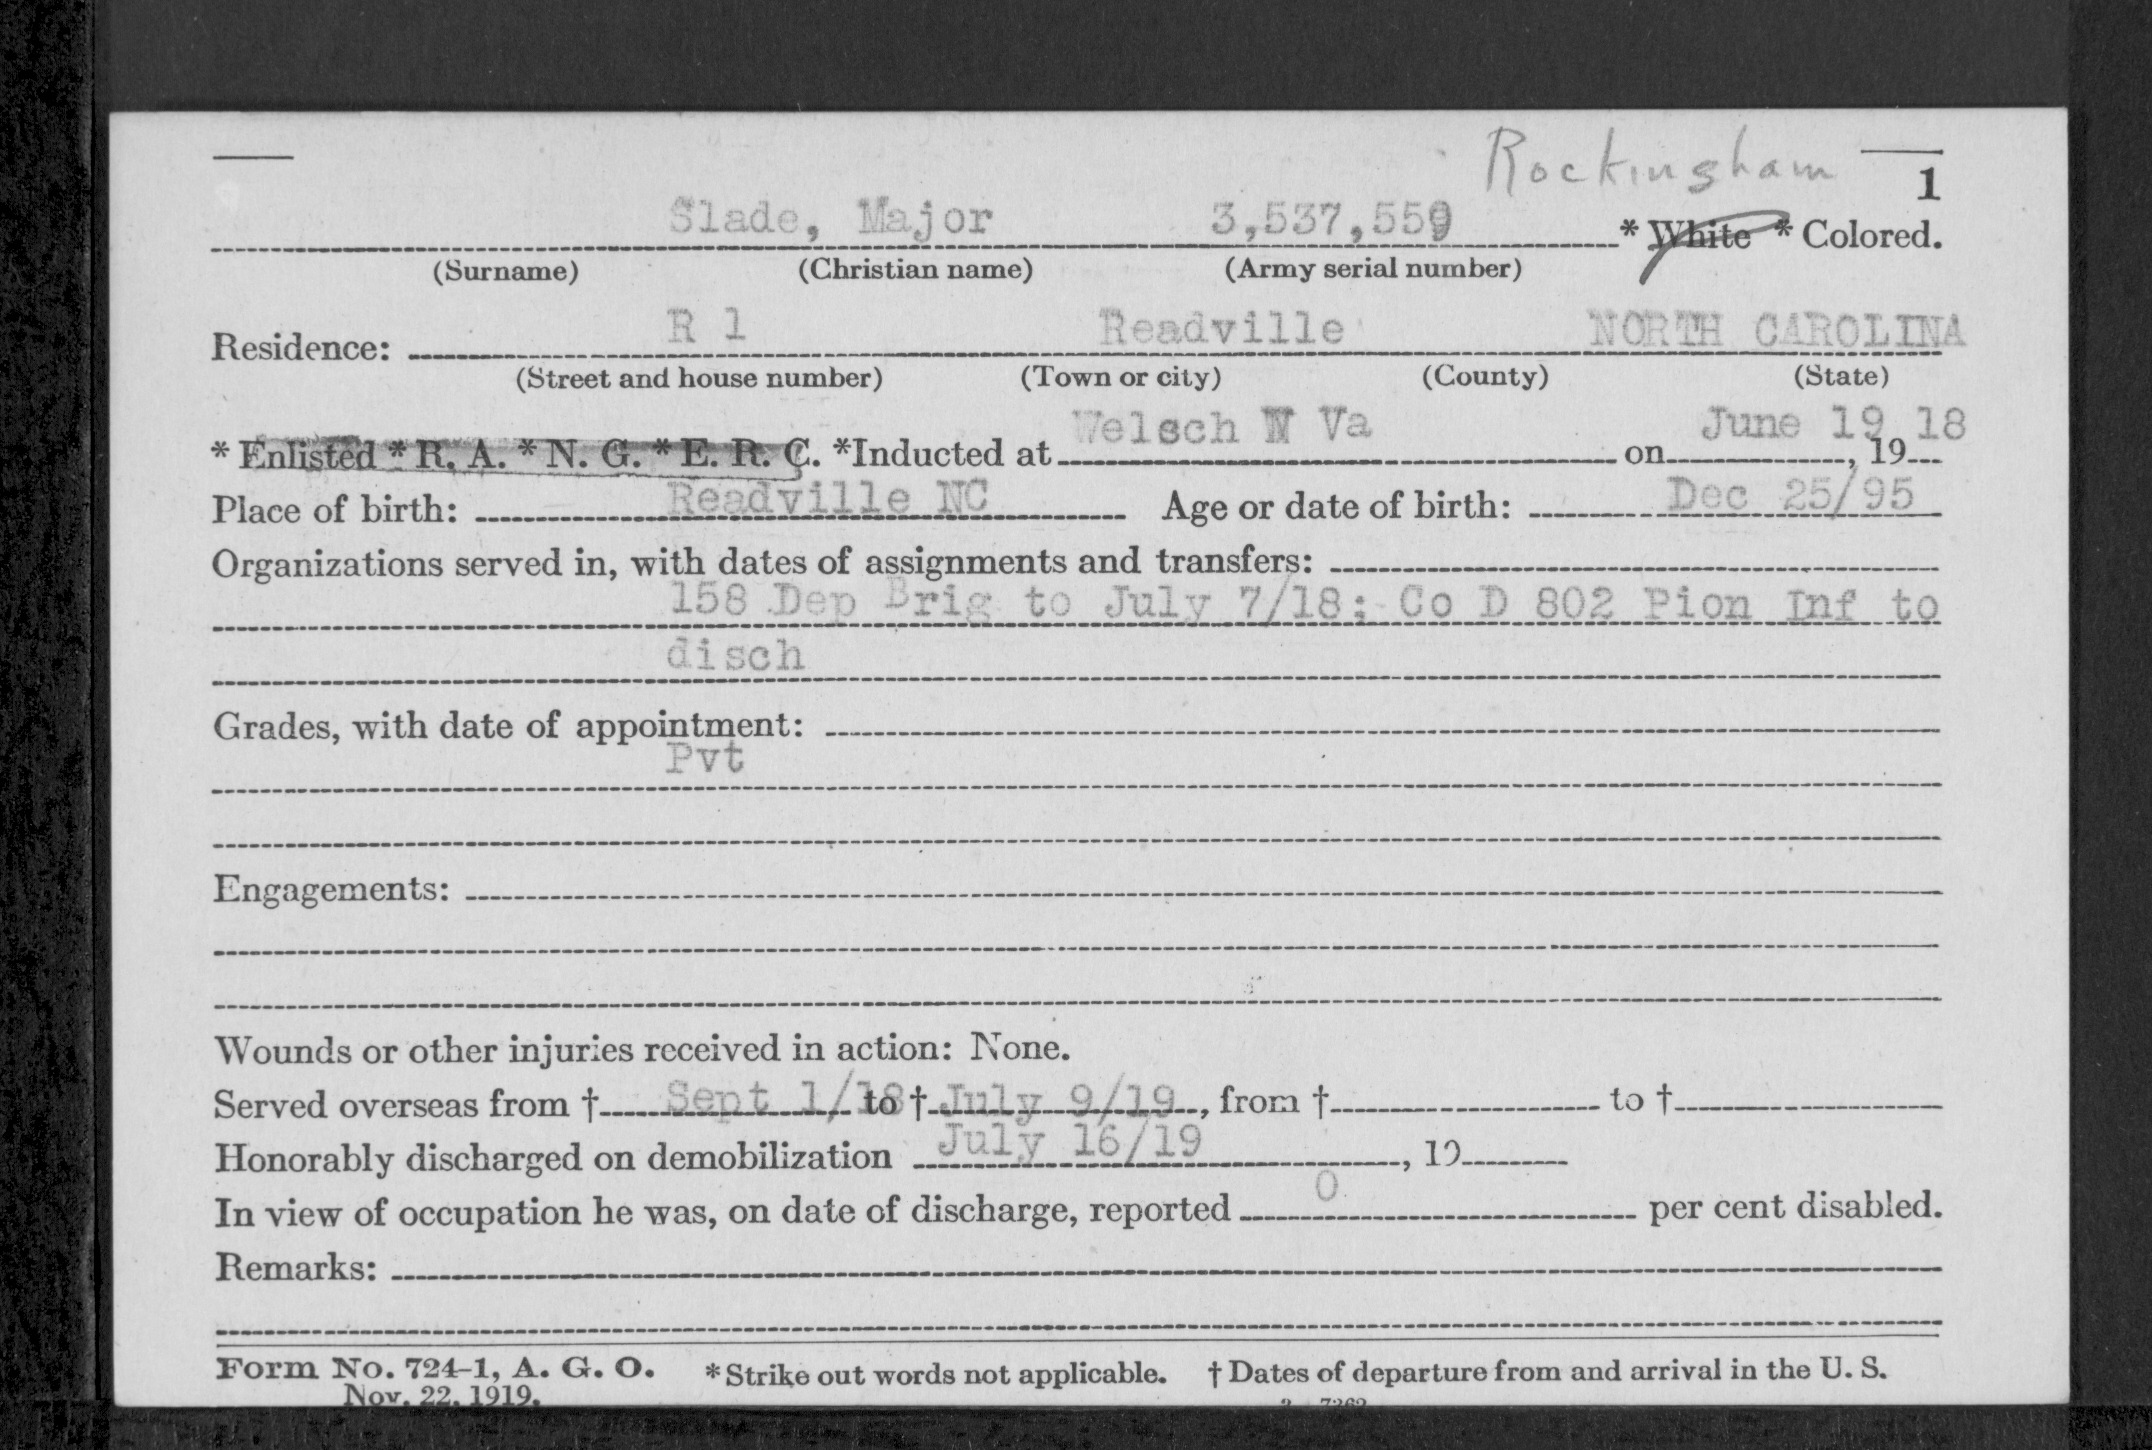 Rockingham
1
Slade, Major 3,537,559 * White * Colored.
(Surname) (Christian name) (Army serial number)
Residence: R 1 Readville NORTH CAROLINA
(Street and house number) (Town or city) (County) (State)
* Enlisted * R. A. * N. G. * E. R. C. *Inducted at Welsch W Va on June 19, 19 18
Place of birth: Readville NC Age or date of birth: Dec 25/95
Organizations served in, with dates of assignments and transfers:
158 Dep Brig to July 7/18; Co D 802 Pion Inf to
disch
Grades, with date of appointment:
Pvt
Engagements:
Wounds or other injuries received in action: None.
Served overseas from † Sept 1/18 to † July 9/19, from † to †
Honorably discharged on demobilization July 16/19, 19
In view of occupation he was, on date of discharge, reported 0 per cent disabled.
Remarks:
Form No. 724-1, A. G. O. * Strike out words not applicable. † Dates of departure from and arrival in the U. S.
Nov. 22, 1919.